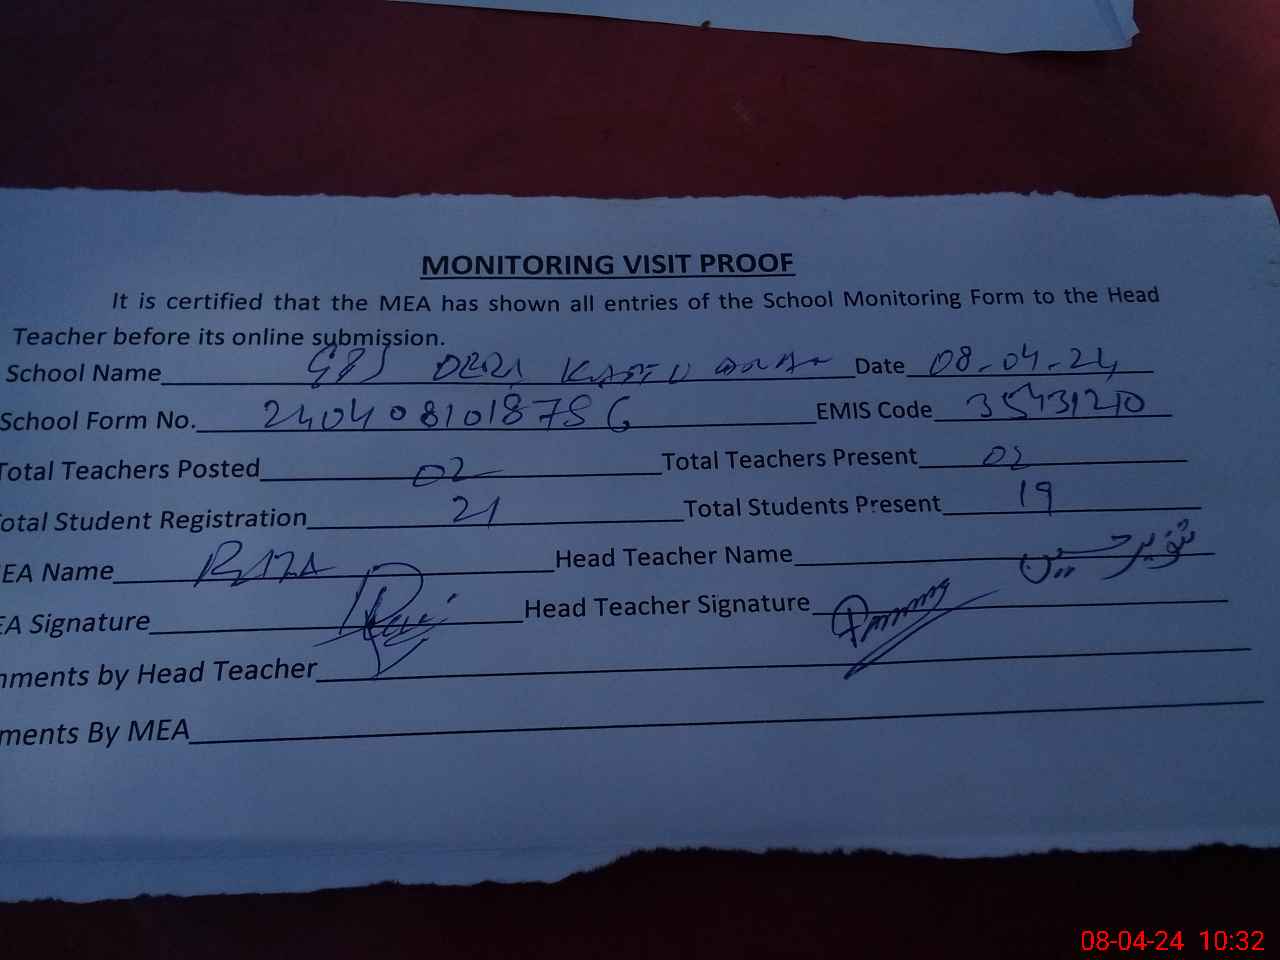 MONITORING VISIT PROOF
It is certified that the MEA has shown all entries of the School Monitoring Form to the Head
Teacher before its online submission.
School Name GPS DERA Date 08-04-24
School Form No. 2404081018786 EMIS Code 35431210
Total Teachers Posted 02 Total Teachers Present 02
otal Student Registration 21 Total Students Present 19
EA Name RAZA Head Teacher Name تنویر حسین
EA Signature Head Teacher Signature
nments by Head Teacher
ments By MEA
08-04-24 10:32